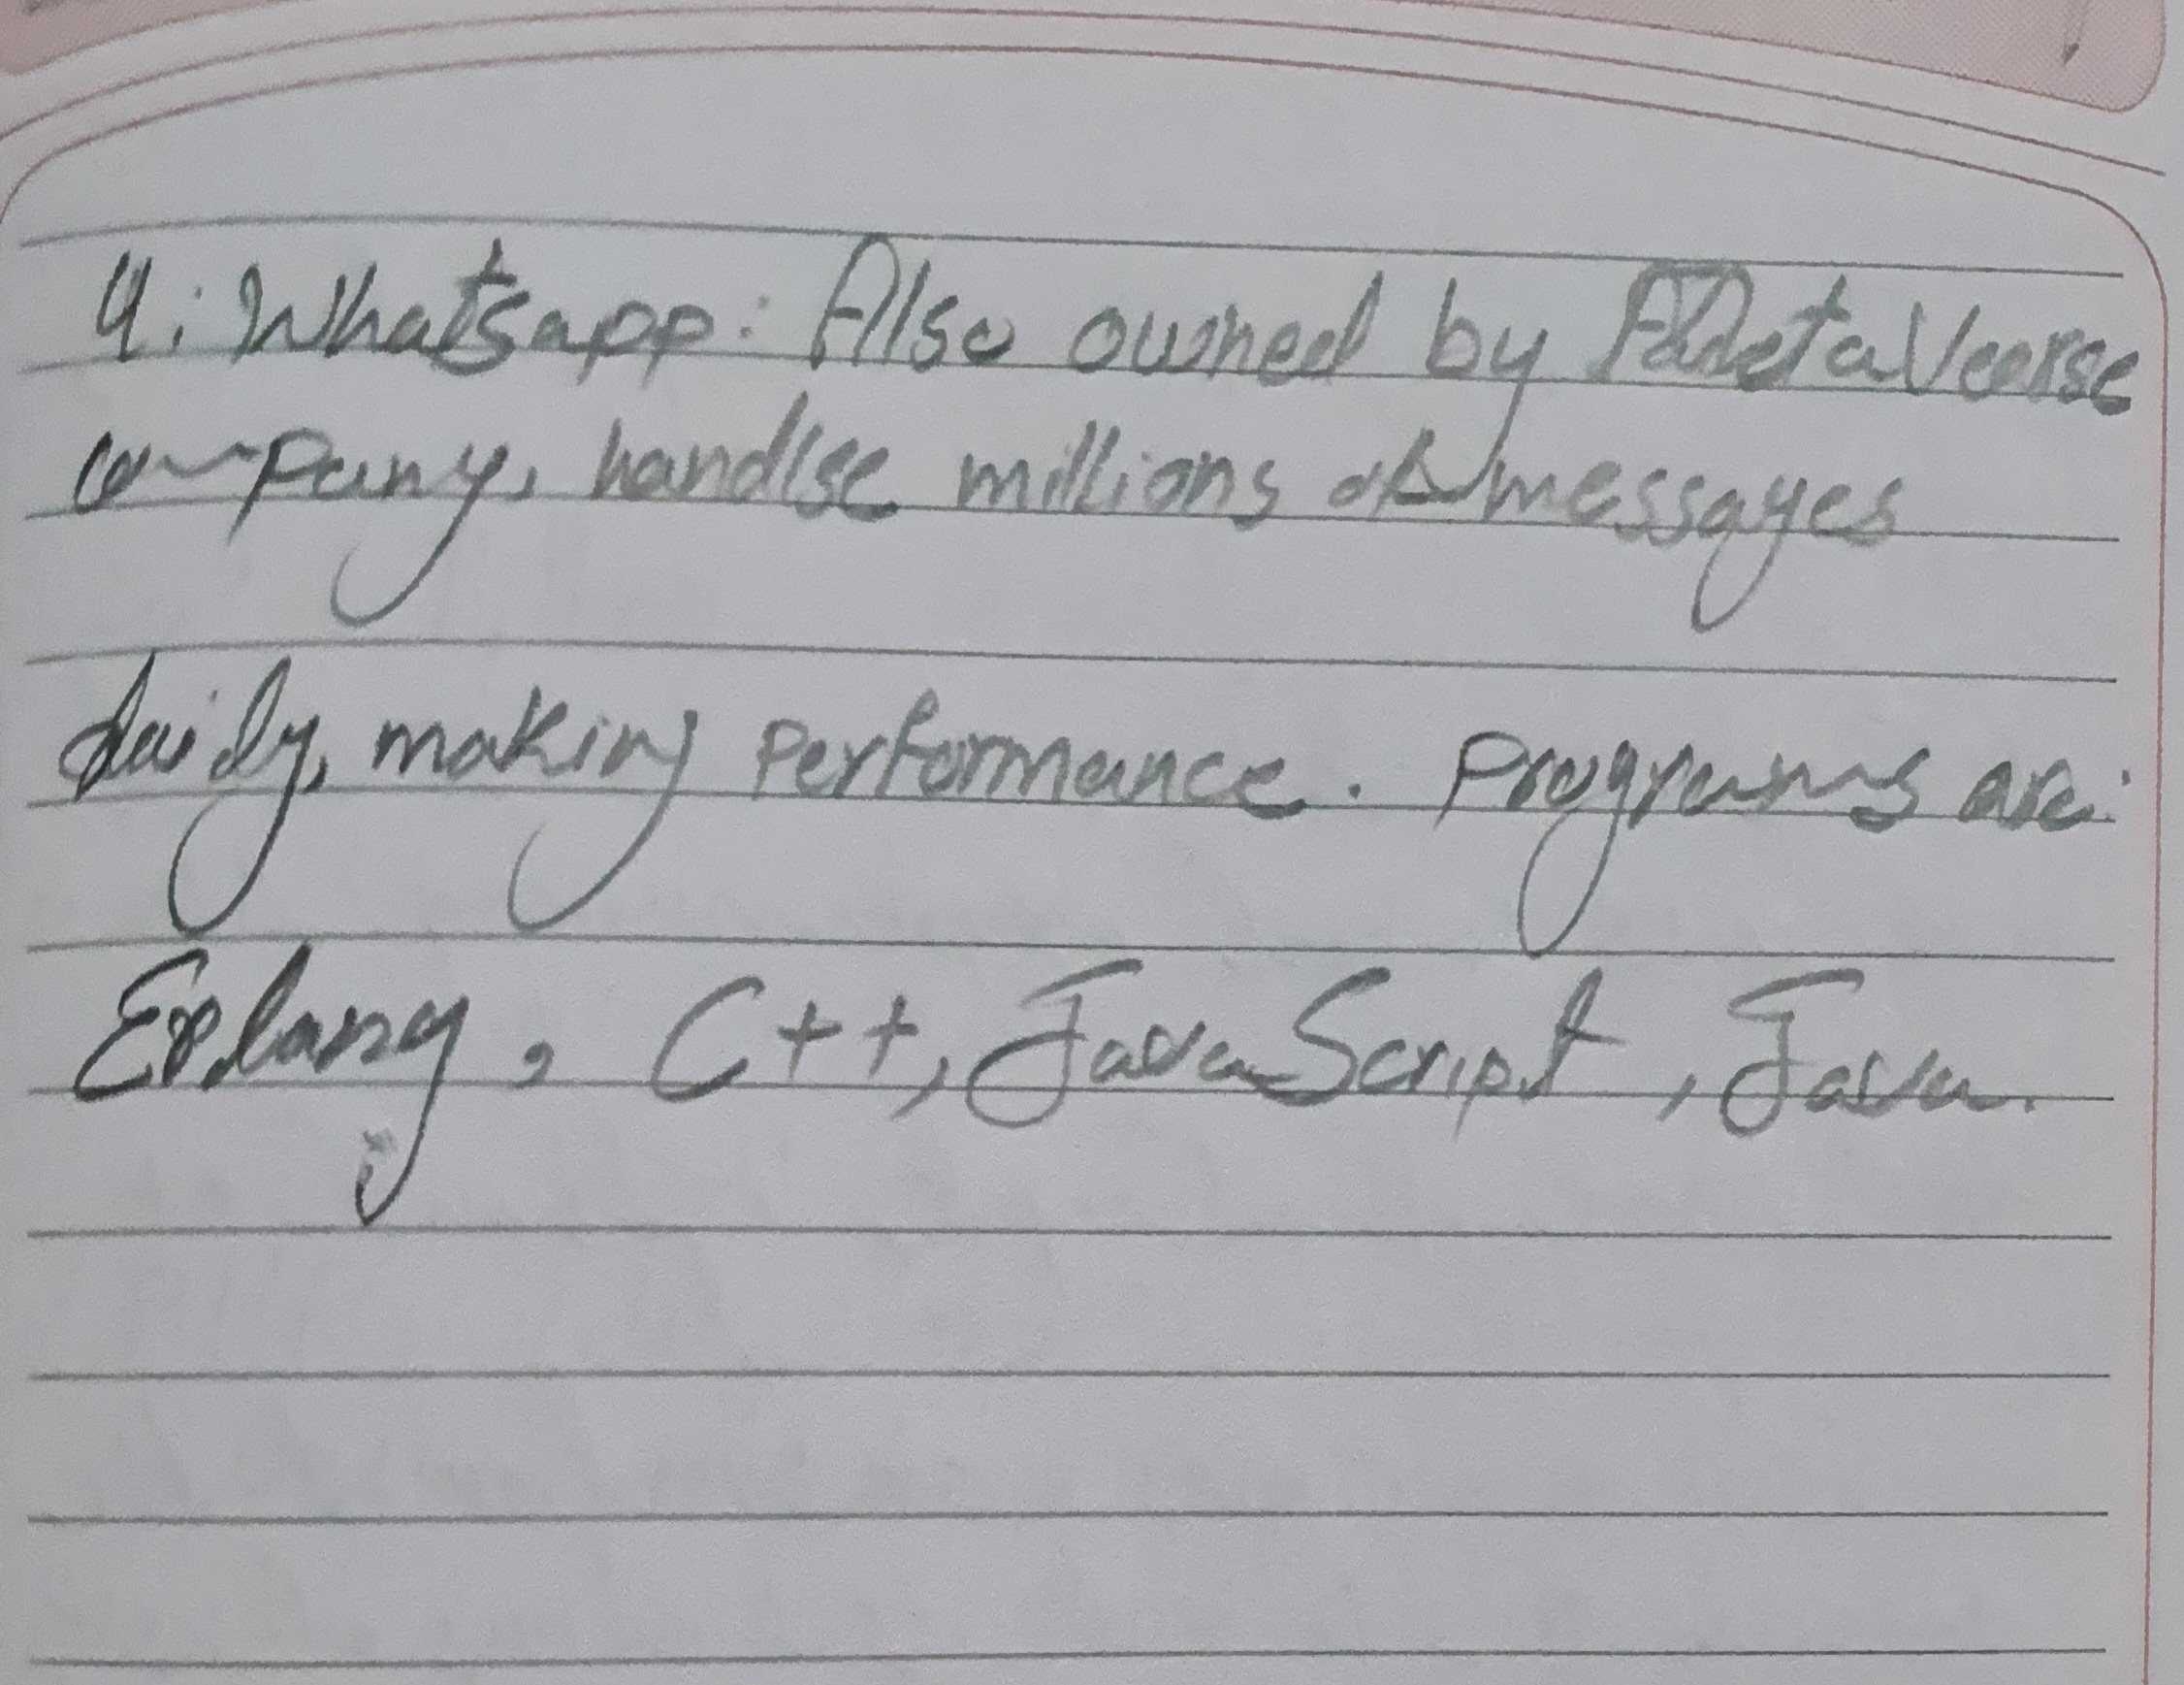 4: Whatsapp: Also owned by MetaVeerse
company, handlse millions of messages
daidy, making Performance. Programs are:
Erlang, C++, JavaScript, Java.